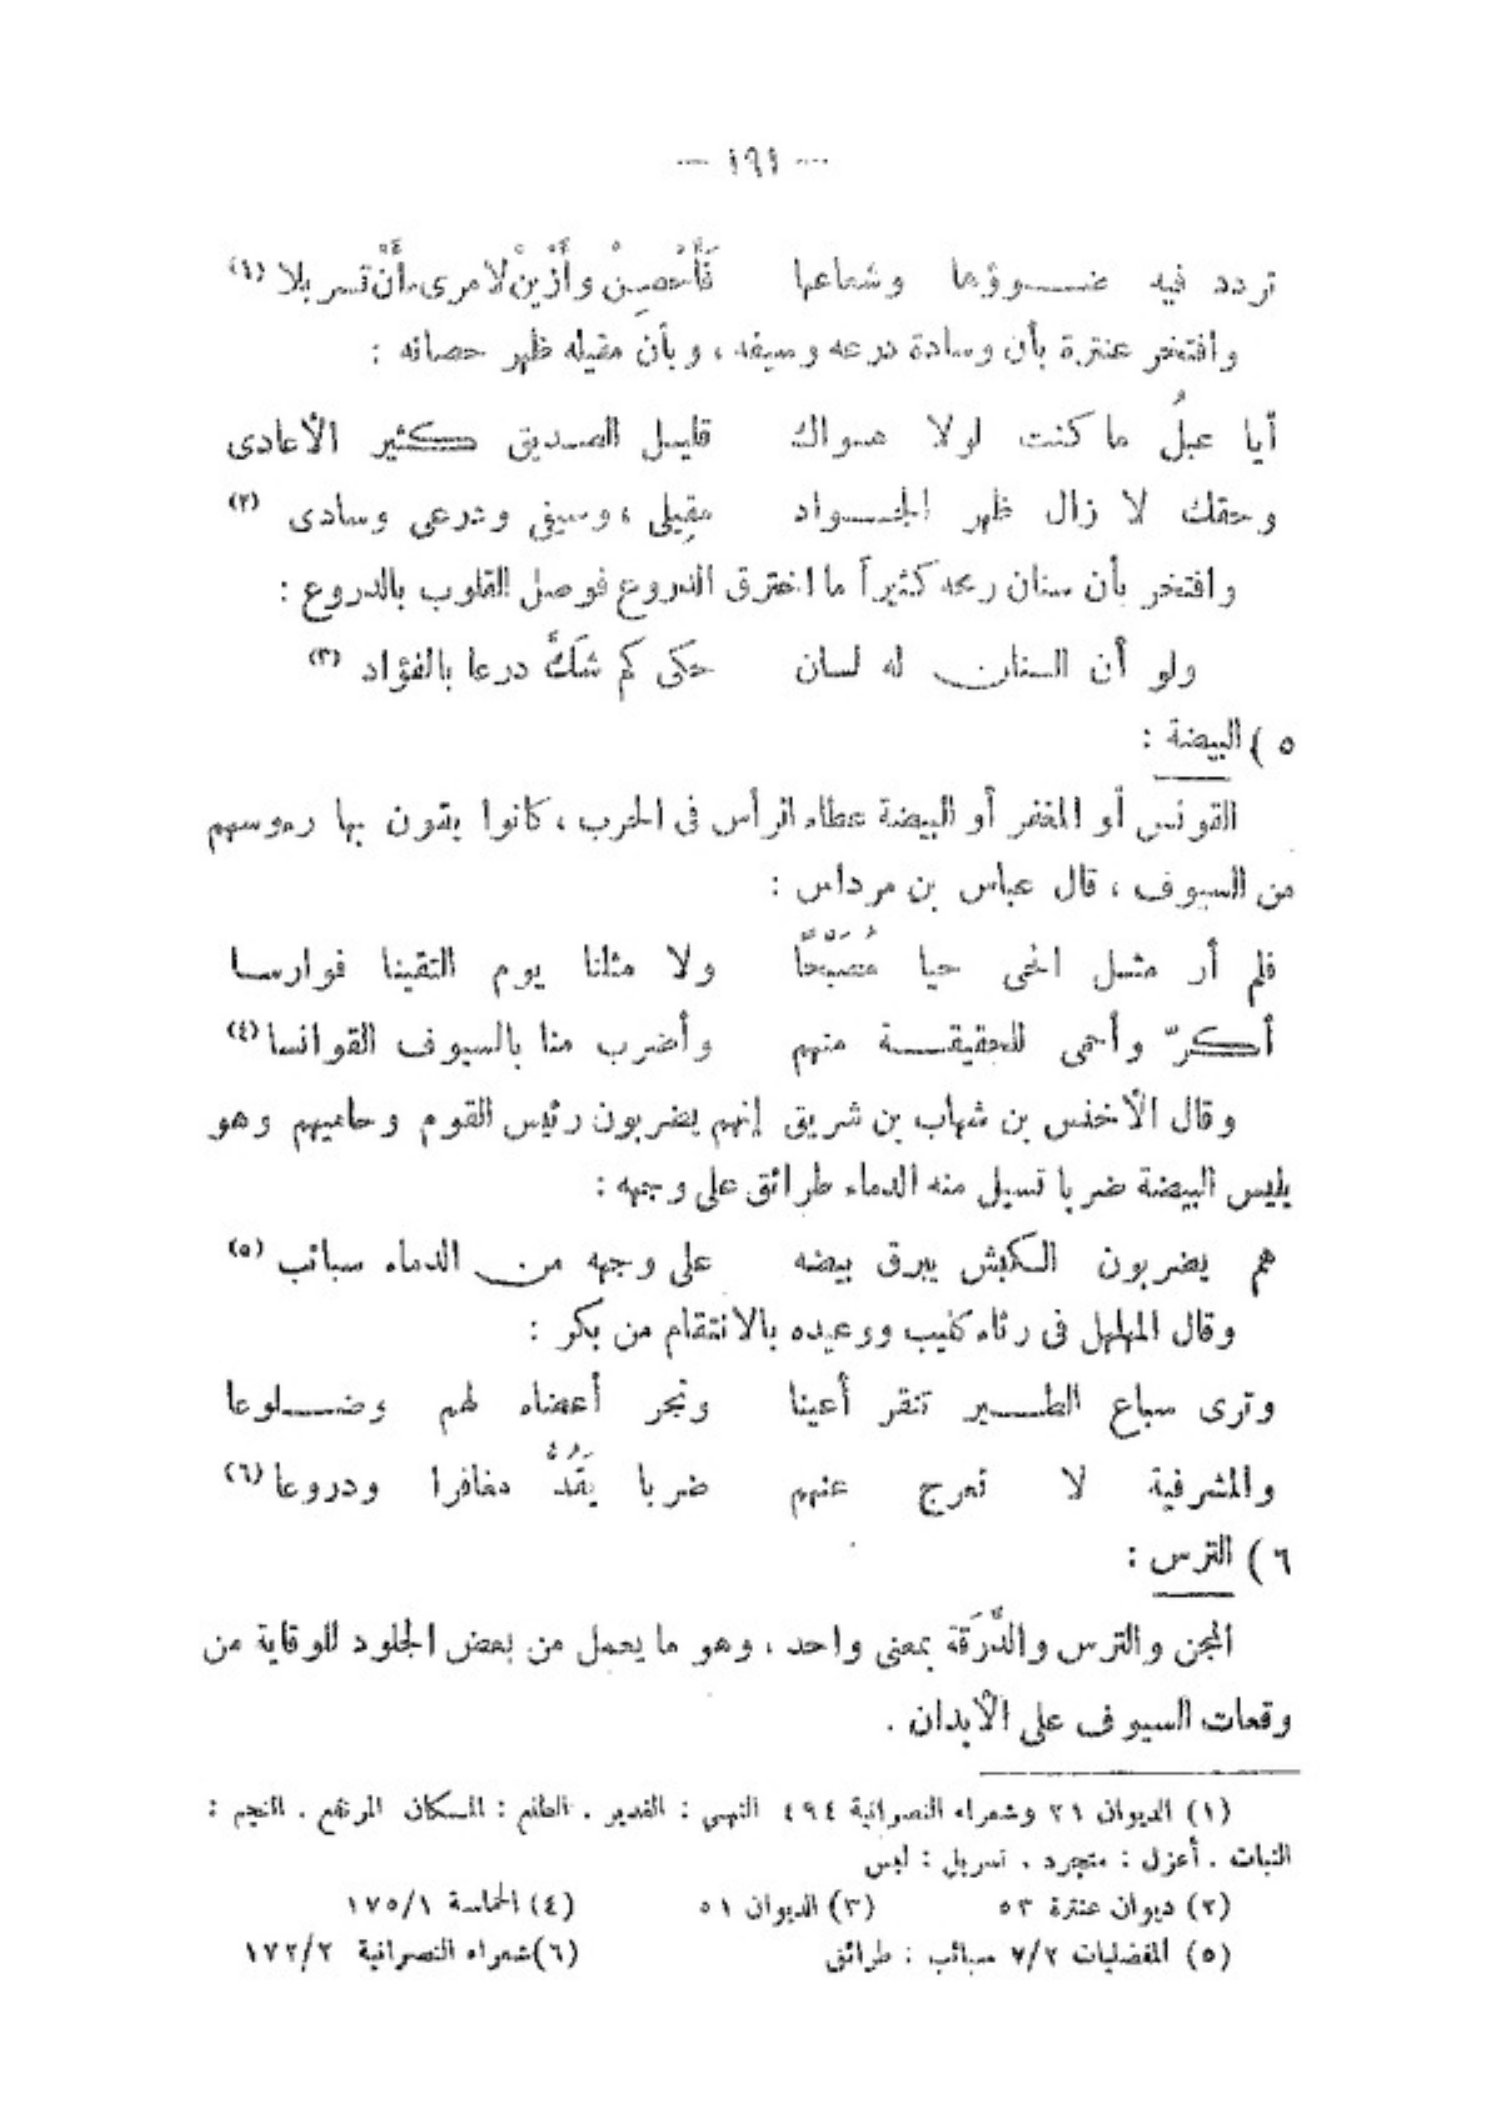 — ١٩١ —
تردد فيه ضـــوؤها وشعاعها فَأَحْصِنْ وأَزْيِنْ لامرىء أَنْ تسر بلا (١)
وافتخر عنترة بأن وسادة درعه وسيفه ، وبأن مقيله ظهر حصانه :
أيا عبلُ ما كنت لولا هـواك قليـل الصـديق كثير الأعادى
وحقك لا زال ظهر الجـــواد مقِيلى ، وسيفى ودرعى وسادى (٢)
وافتخر بأن سنان رمحه كثيراً ما اخترق الدروع فوصل القلوب بالدروع :
ولو أن السنان له لسان حكى كم شَكَّ درعا بالفؤاد (٣)
٥ ) البيضة :
القونس أو المغفر أو البيضة غطاء الرأس فى الحرب ، كانوا يقون بها رءوسهم
من السيوف ، قال عباس بن مرداس :
فلم أر مثـل الحى حيا مُصَبَّحًا ولا مثلنا يوم التقينا فوارسـا
أكرّ وأحمى للحقيقـــة منهم وأضرب منا بالسيوف القوانسا (٤)
وقال الأخنس بن شهاب بن شريق إنهم يضربون رئيس القوم وحاميهم وهو
يلبس البيضة ضربا تسيل منه الدماء طرائق على وجهه :
هم يضربون الكبش يبرق بيضه على وجهه من الدماء سبائب (٥)
وقال المهلهل فى رثاء كليب ووعيده بالانتقام من بكر :
وترى سباع الطـــير تنقر أعينا وتجر أعضاء لهم وضـــلوعا
والمشرفية لا تعرج عنهم ضربا يَقُدُّ مغافرا ودروعا (٦)
٦ ) الترس :
المجن والترس والدَّرَقة بمعنى واحد ، وهو ما يعمل من بعض الجلود للوقاية من
وقعات السيوف على الأبدان .
(١) الديوان ٢١ وشعراء النصرانية ٤٩٤ النهى : الغدير . الطلع : المكان المرتفع . النجم :
النبات . أعزل : متجرد . تسربل : لبس
(٢) ديوان عنترة ٥٣ (٣) الديوان ٥١ (٤) الحماسة ١٧٥/١
(٥) المفضليات ٧/٢ سبائب : طرائق (٦) شعراء النصرانية ١٧٢/٢